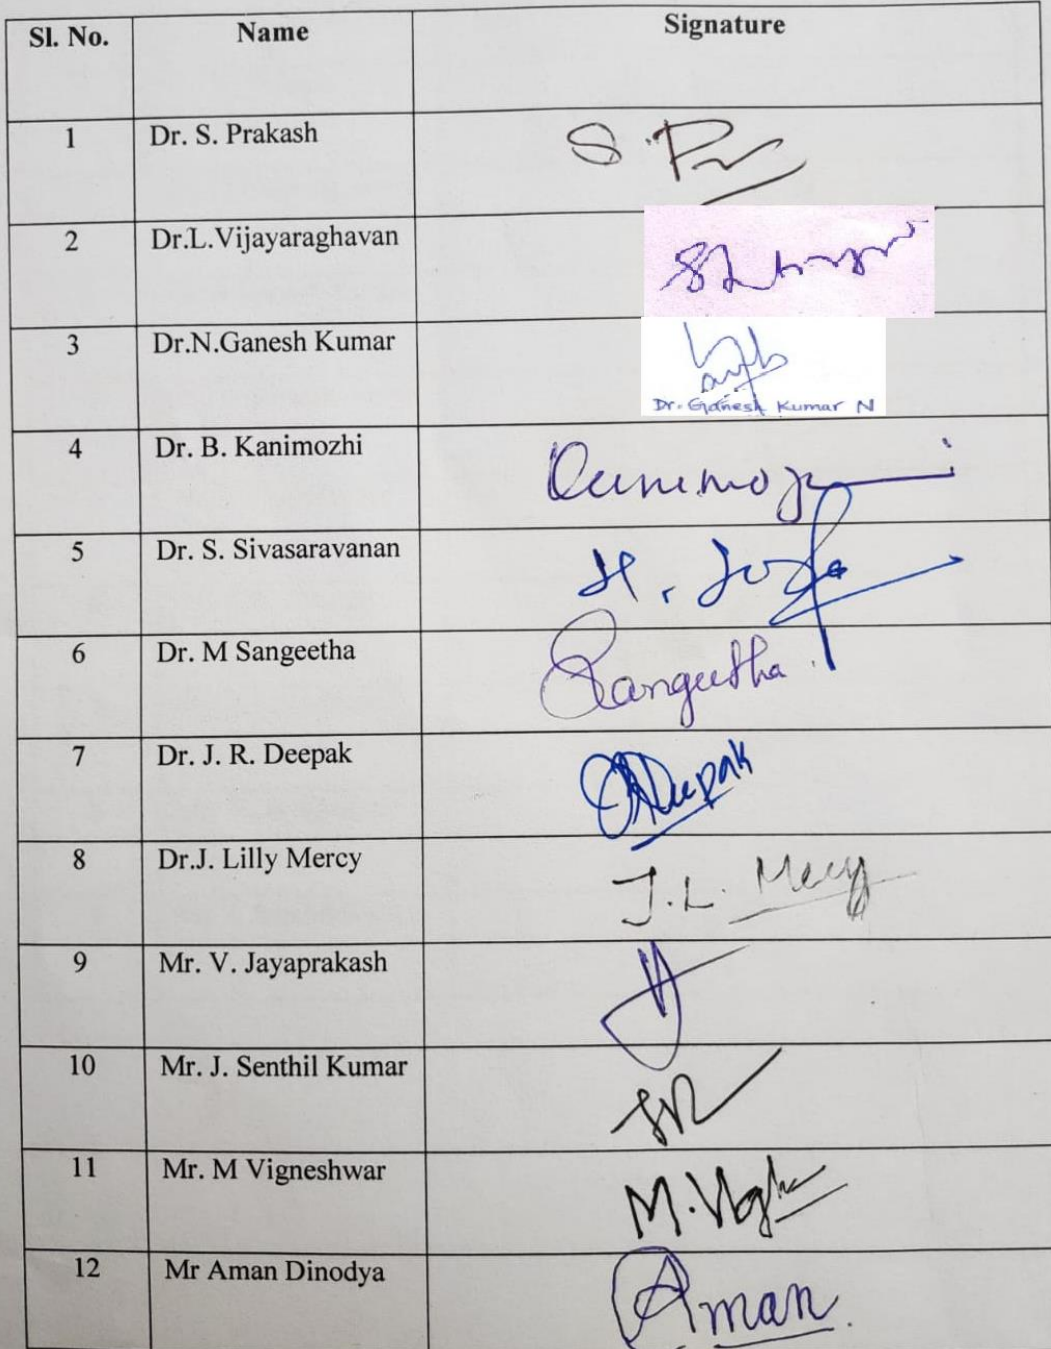 Sl. No. Name Signature
1 Dr. S. Prakash S. Pr
2 Dr.L.Vijayaraghavan
3 Dr.N.Ganesh Kumar
Dr. Ganesh Kumar N
4 Dr. B. Kanimozhi
5 Dr. S. Sivasaravanan
6 Dr. M Sangeetha Sangeetha.
7 Dr. J. R. Deepak JRDeepak
8 Dr.J. Lilly Mercy J.L. Mercy
9 Mr. V. Jayaprakash
10 Mr. J. Senthil Kumar
11 Mr. M Vigneshwar
12 Mr Aman Dinodya Aman.